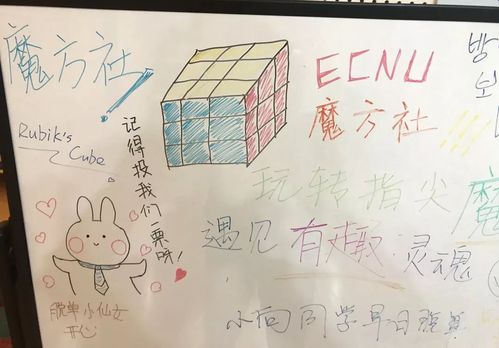 魔方社
Rubik's
Cube
记得投我们一票呀！
ECNU
魔方社!!!
玩转指尖魔
遇见有趣灵魂
小向同学早日脱单
脱单小仙女
开心
방
보